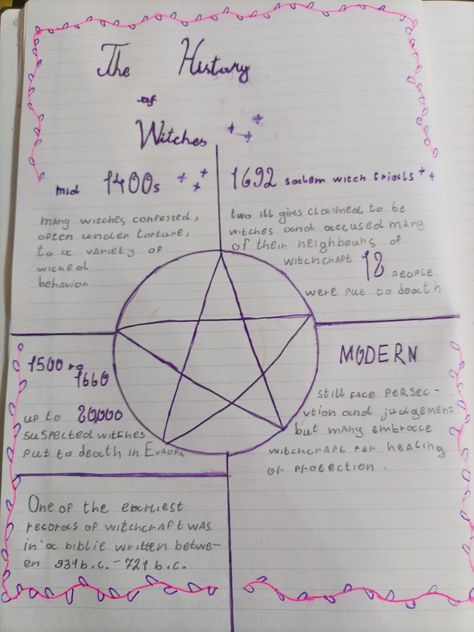 The History
of
Witches
mid 1400s
many witches confessed,
often under torture,
to a variety of
wicked
behavior
1692 saolem witch triads
two ill girls claimed to be
witches and accused many
of their neighbours of
witchcraft 18 people
were put to death
1500 ro
1660
up to 80,000
suspected witches
put to death in Europa
MODERN
still face persec-
ution and judgement
but many embrace
witchcraft for healing
or protection.
One of the earliest
records of witchcraft was
in a biblie written betwe-
en 931 b.c. - 721 b.c.